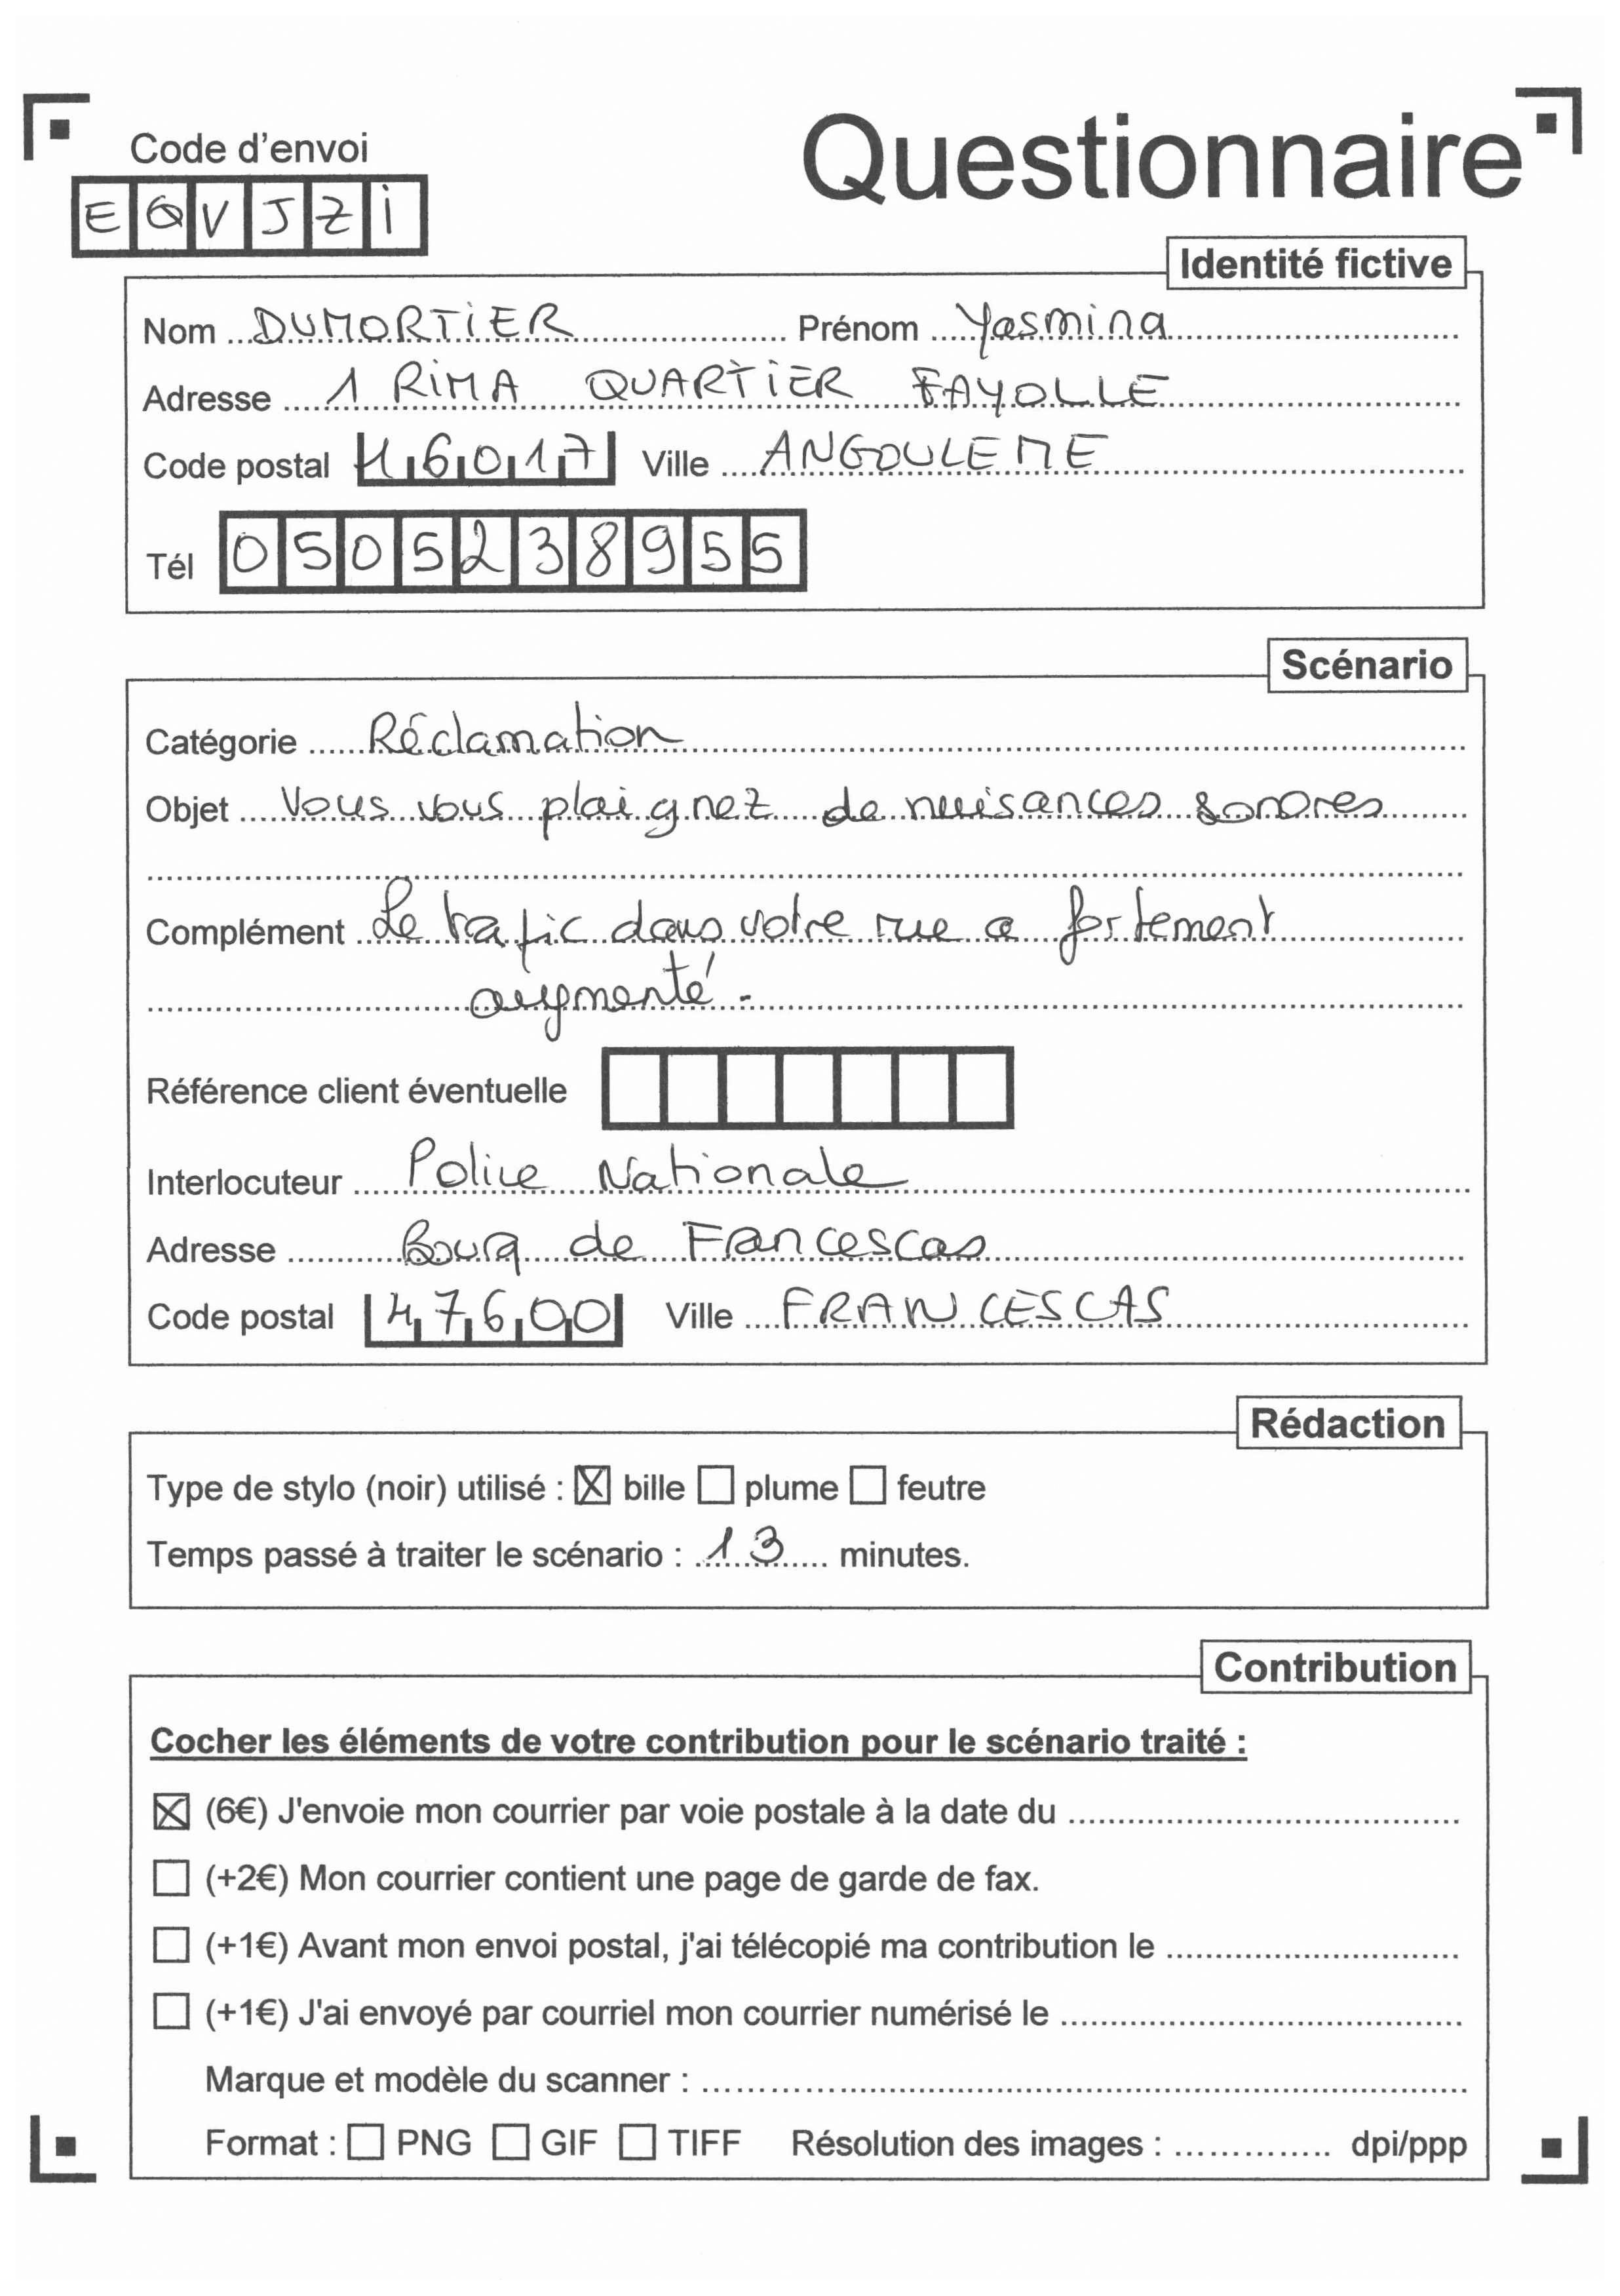 Code d'envoi
Questionnaire
EQVJZi
Identité fictive
Nom DUMORTiER Prénom Yasmina
Adresse 1 RiMA QUARTiER FAYOLLE
Code postal 16017 Ville ANGOULEME
Tél 0505238955
Scénario
Catégorie Réclamation
Objet Vous vous plaignez de nuisances sonores
Complément Le trafic dans votre rue a fortement
augmenté.
Référence client éventuelle
Interlocuteur Police Nationale
Adresse Bourg de Francescas
Code postal 47600 Ville FRANCESCAS
Rédaction
Type de stylo (noir) utilisé : ☒ bille ☐ plume ☐ feutre
Temps passé à traiter le scénario : 13 minutes.
Contribution
Cocher les éléments de votre contribution pour le scénario traité :
☒ (6€) J'envoie mon courrier par voie postale à la date du
☐ (+2€) Mon courrier contient une page de garde de fax.
☐ (+1€) Avant mon envoi postal, j'ai télécopié ma contribution le
☐ (+1€) J'ai envoyé par courriel mon courrier numérisé le
Marque et modèle du scanner :
Format : ☐ PNG ☐ GIF ☐ TIFF Résolution des images : dpi/ppp